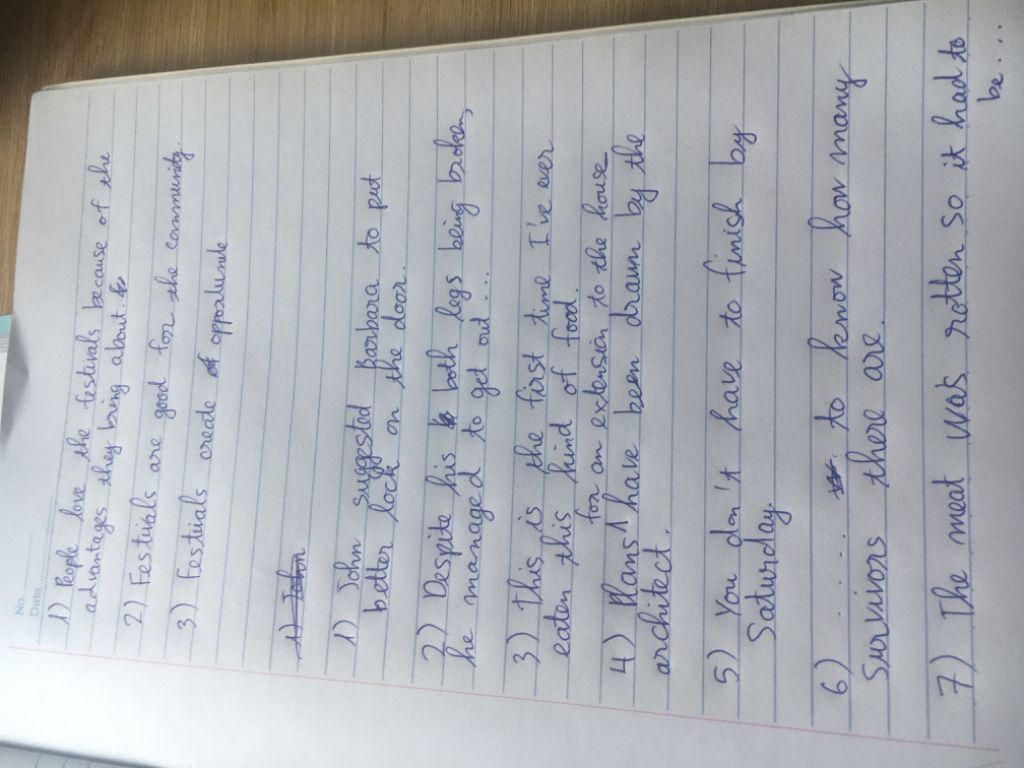 No.
Date
1) People love the festivals because of the
advantages they bring about.
2) Festivals are good for the community.
3) Festivals create opportunite
1) John
1) John suggested Barbara to put
better lock on the door.
2) Despite his both legs being broken,
he managed to get out...
3) This is the first time I've ever
eaten this kind of food.
for an extension to the house
4) Plans have been drawn by the
architect.
5) You don't have to finish by
Saturday.
6) ..... to know how many
survivors there are.
7) The meat was rotten so it had to
be....